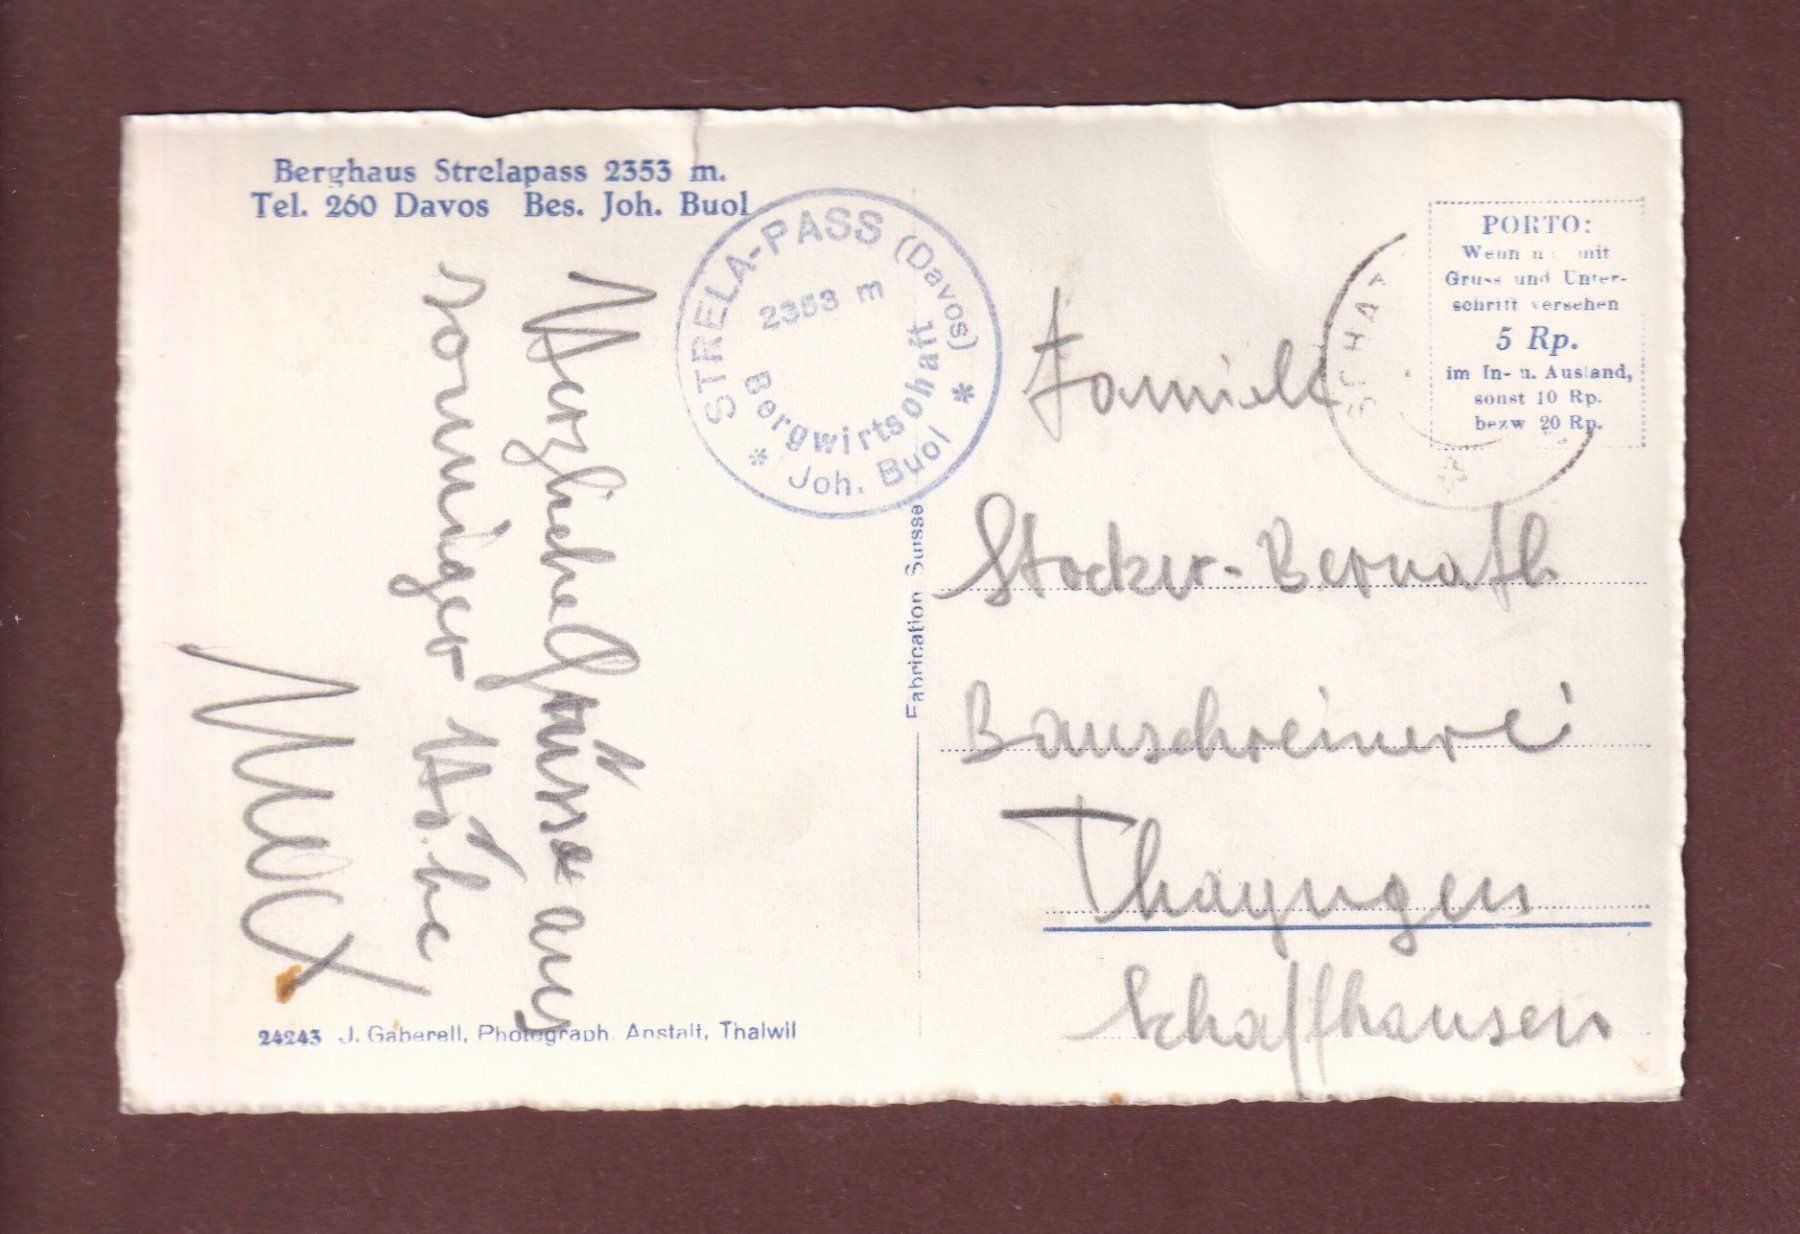 Berghaus Strelapass 2353 m.
Tel. 260 Davos Bes. Joh. Buol
STRELA-PASS (Davos)
2353 m
Bergwirtschaft
* Joh. Buol *
Herzliche Grüsse aus
sonniger Höhe
Max
24243 J. Gaberell, Photograph. Anstalt, Thalwil
Fabrication Suisse
SCHAT
PORTO:
Wenn mit
Gruss und Unter-
schrift versehen
5 Rp.
im In- u. Ausland,
sonst 10 Rp.
bezw 20 Rp.
Familie
Stocker-Bernath
Bauschreinerei
Thayngen
Schaffhausen